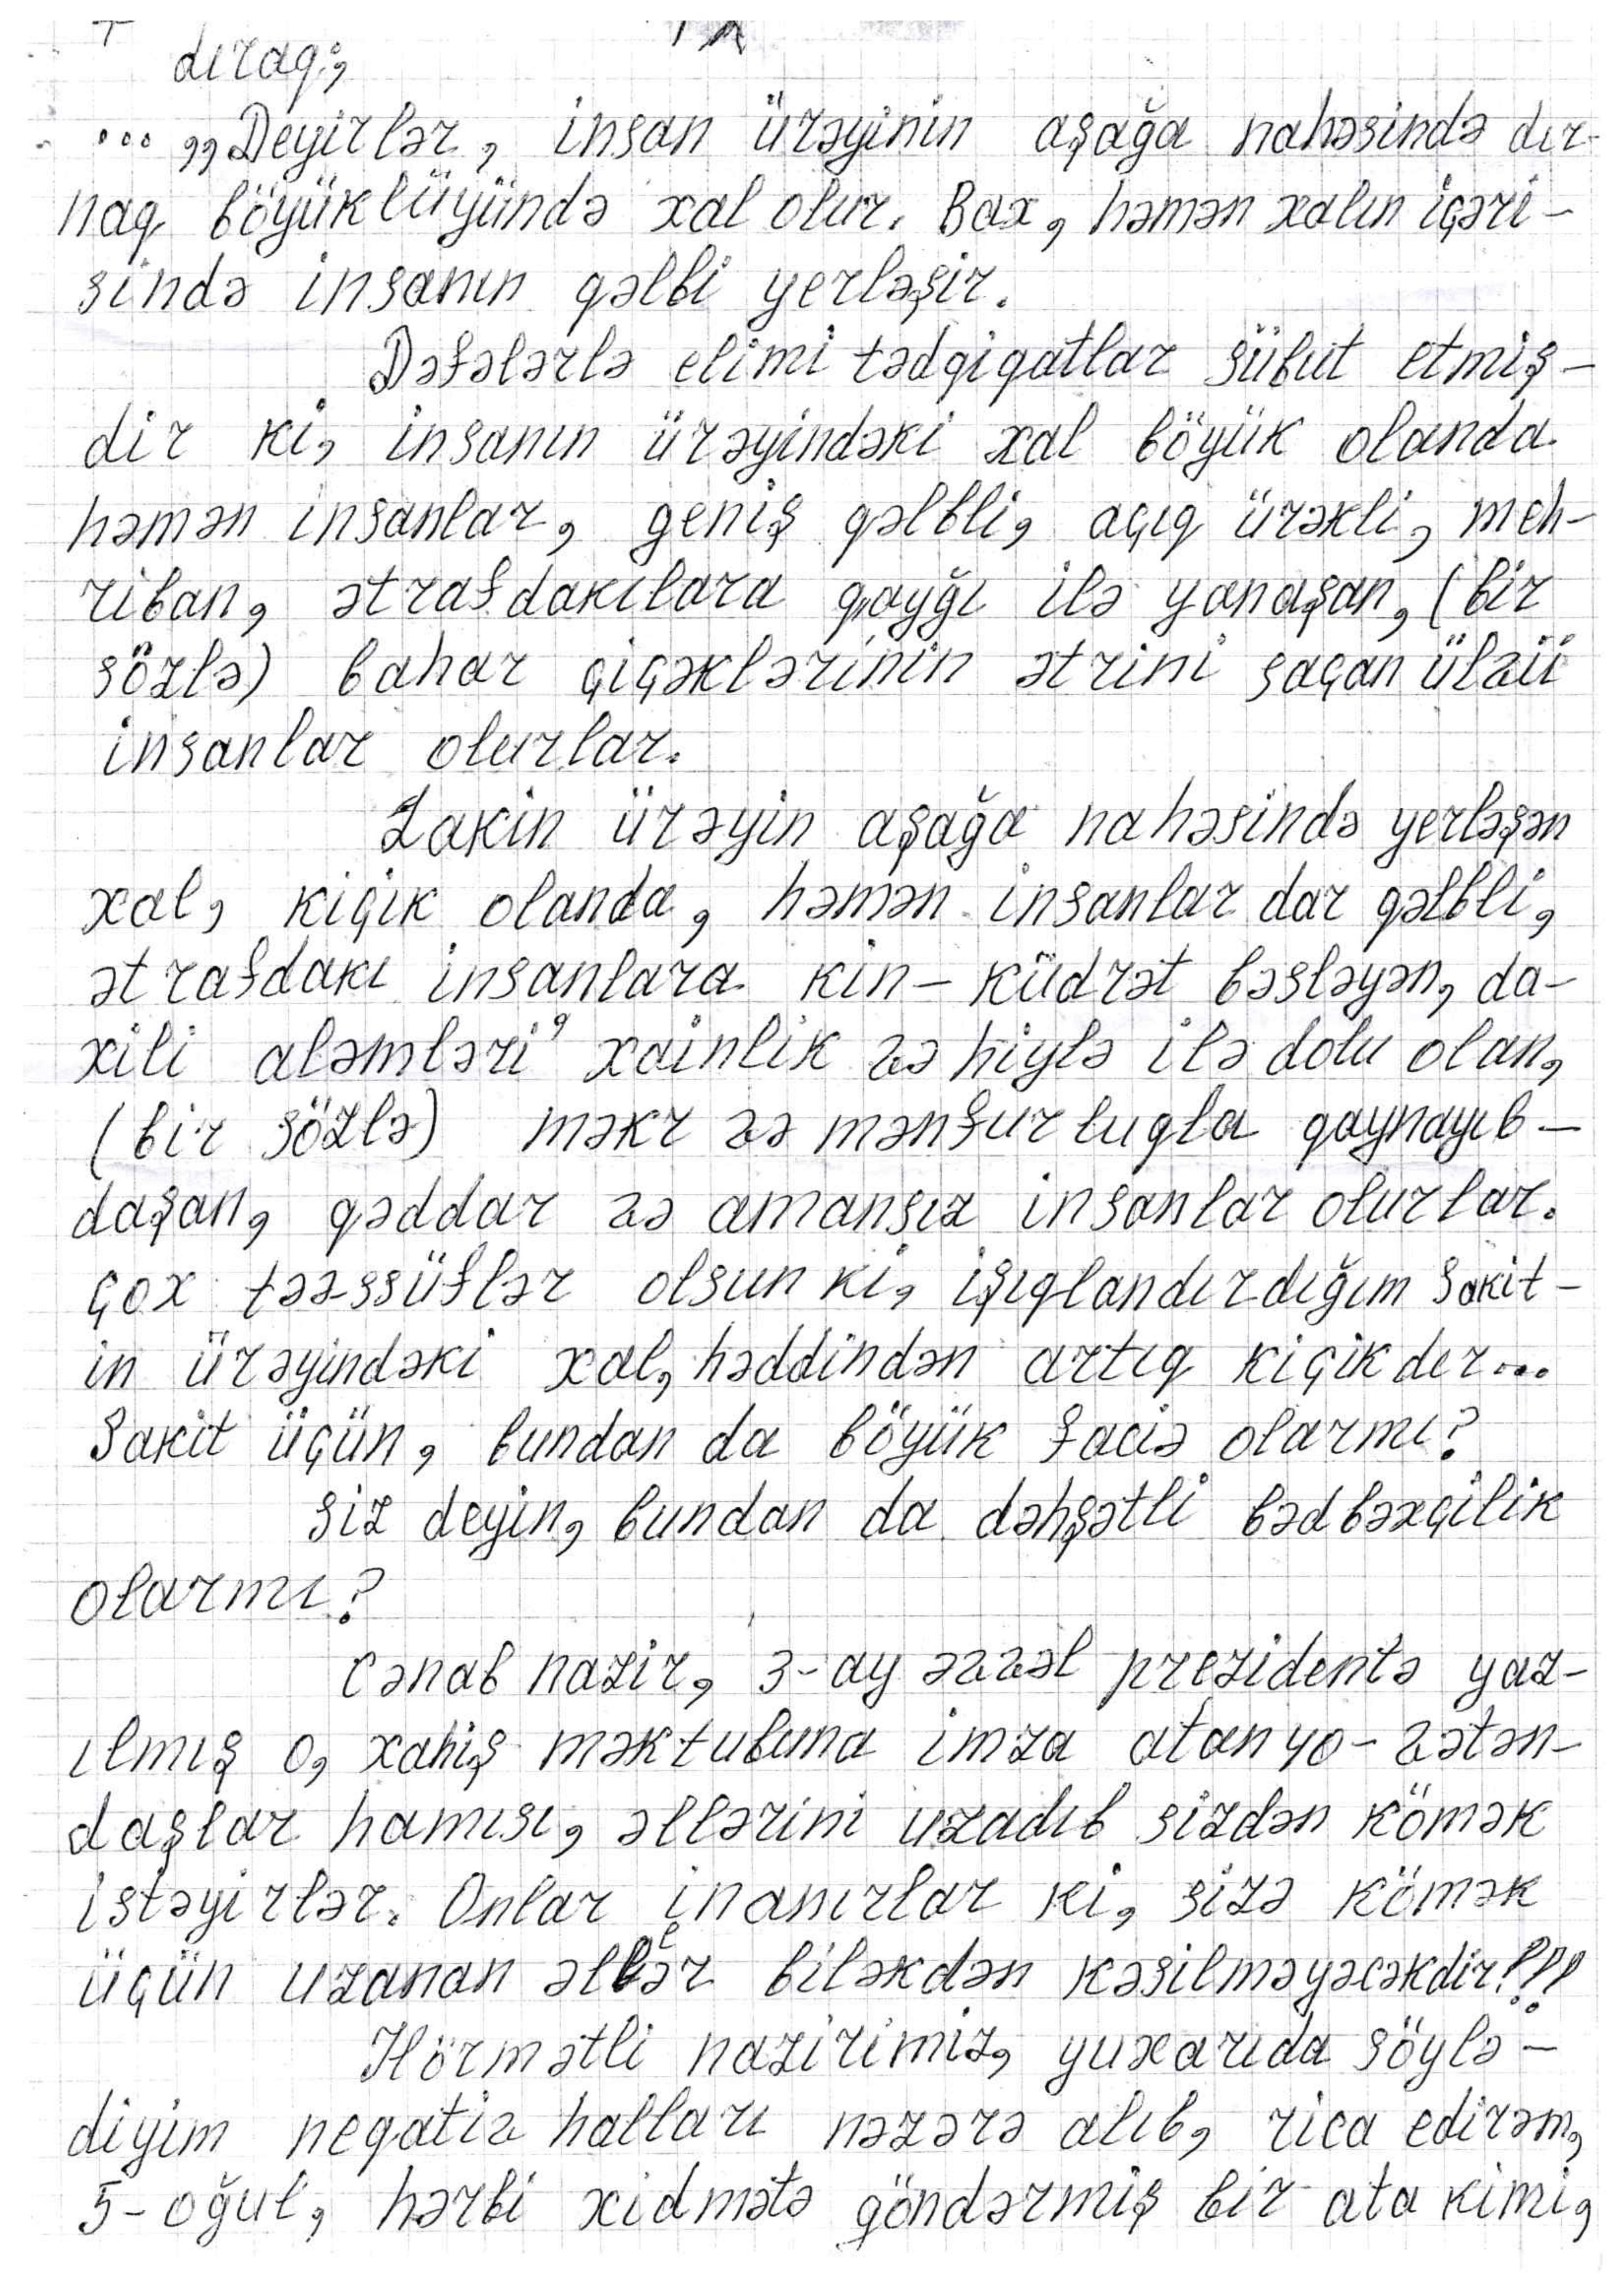 dıraq;,
... ,,Deyirlər, insan ürəyinin aşağa nahəsində dır-
naq böyüklüyündə xal olur. Bax, həmən xalın içəri-
sində insanın qəlbi yerləşir.
Dəfələrlə elimi tədqiqatlar sübut etmiş-
dir ki, insanın ürəyindəki xal böyük olanda
həmən insanlar, geniş qəlbli, açıq ürəkli, meh-
riban, ətrafdakılara qayğı ilə yanaşan, (bir
sözlə) bahar çiçəklərinin ətrini saçan ülvü
insanlar olurlar.
Lakin ürəyin aşağa nahəsində yerləşən
xal, kiçik olanda, həmən insanlar dar qəlbli,
ətrafdakı insanlara kin-küdrət bəsləyən, da-
xili aləmləri, xainlik və hiylə ilə dolu olan,
(bir sözlə) məkr və mənfurluqla qaynayıb-
daşan, qəddar və amansız insanlar olurlar.
Çox təəssüflər olsun ki, işıqlandırdığım Sakit-
in ürəyindəki xal, həddindən artıq kiçikdır...
Sakit üçün, bundan da böyük faciə olarmı?
Siz deyin, bundan da dəhşətli bədbəxçilik
olarmı?
Cənab nazir, 3-ay əvvəl prezidentə yaz-
ılmış o, xahiş məktubuna imza atan 40-vətən-
daşlar hamısı, əllərini uzadıb sizdən kömək
istəyirlər. Onlar inanırlar ki, sizə kömək
üçün uzanan əllər biləkdən kəsilməyəcəkdir!??
Hörmətli nazirimiz, yuxarıda söylə-
diyim neqativ halları nəzərə alıb, rica edirəm,
5-oğul, hərbi xidmətə göndərmiş bir ata kimi,